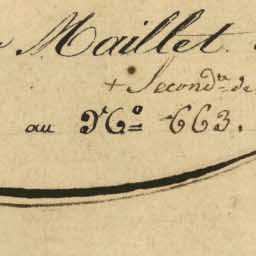 Maillet.
+ Secondte de
au No= 663.